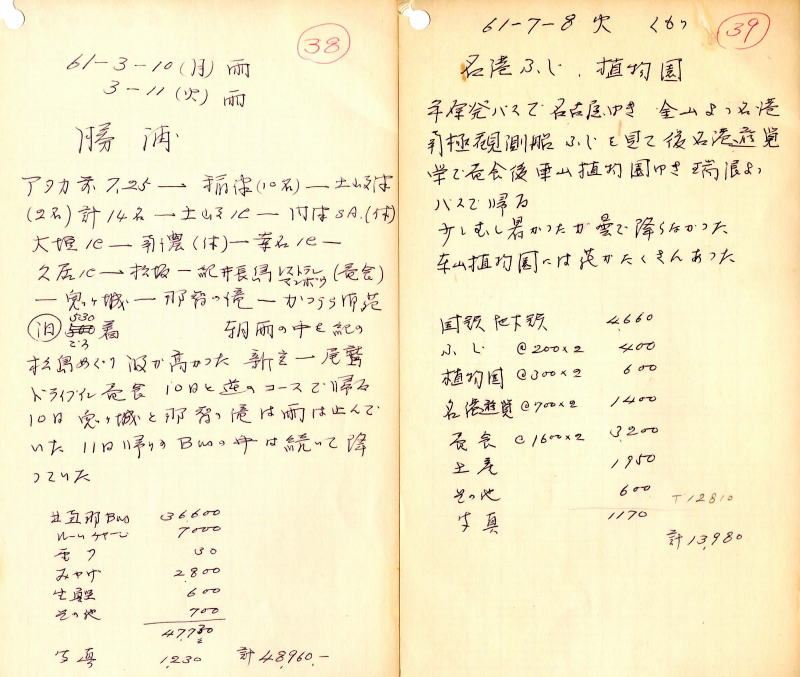 38
61-3-10(月) 雨
3-11(火) 雨
勝浦
7.25 → (10名) ― 土岐
(2名) 計14名 ― 土岐IC ― S.A.(休)
大垣IC ― (休) ― 桑名IC ―
久居IC → 松坂 ― 紀井長島 レストラン (昼食)
― 鬼ヶ城 ― 那智の滝 ― かつうら
泊 5.30 着 朝雨の中を紀の
松島めぐり 波が高かった 新宮 ― 尾鷲
ドライブイン昼食 10日と逆のコースで帰る
10日 鬼ヶ城と那智の滝は雨は止んで
いた 11日帰りのBusの中は続いて降
っていた
Bus 36600
ルームサービス 7000
30
みやげ 2,800
600
その他 700
47,730
写真 1,230 計48,960.-
39
61-7-8 火 くもり
名港ふじ、植物園
バスで名古屋ゆき 金山より名港
南極観測船ふじを見て後名港遊覧
で昼食後東山植物園ゆき 瑞浪より
バスで帰る
少しむし暑かったが曇で降らなかった
東山植物園には花がたくさんあった
国鉄 地下鉄 4,660
ふじ @200×2 400
植物園 @300×2 600
名港遊覧 @700×2 1400
昼食 @1600×2 3200
土産 1950
その他 600 T 12810
写真 1170
計13,980